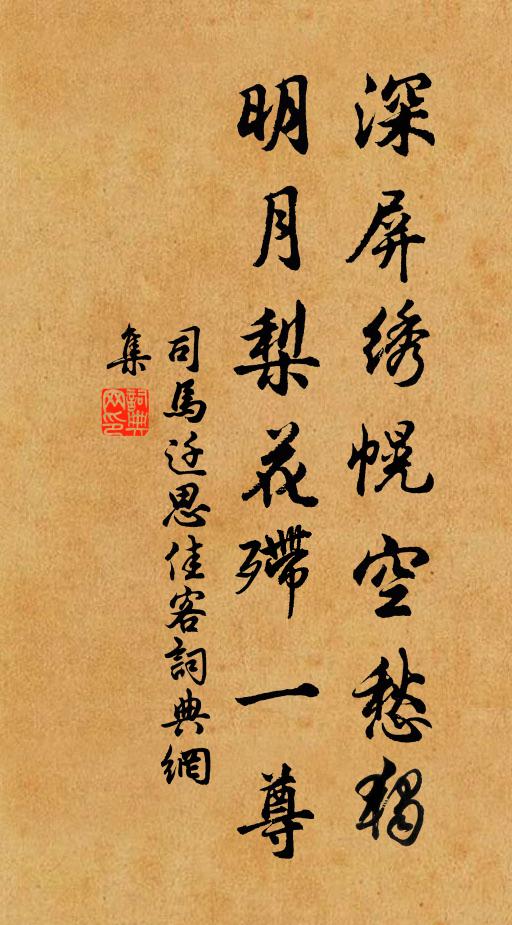 深屏绣幌空愁獨
明月梨花殢一尊
司馬迁思佳客詞典網
集
詞典
网印